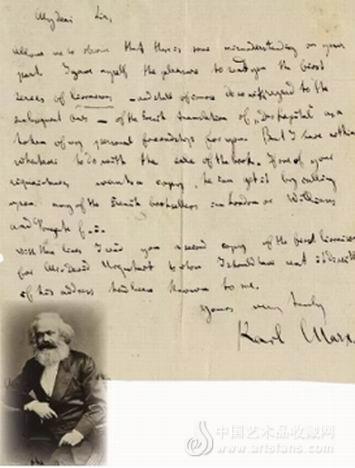 My dear Sir,
Allow me to observe that there is some misunderstanding on your
part. I gave myself the pleasure to send you the first
series of livraisons — and shall of course do so in regard to the
subsequent ones — of the French translation of „das Kapital" as a
token of my personal friendship for you. But I have nothing
whatever to do with the sale of the book. If one of your
acquaintances wants a copy, he can get it by calling
upon any of the French booksellers in London or Williams
and
With these lines I send you a second copy of the first livraisons
for Urquhart to whom I should have sent it directly
if his address had been known to me.
Yours very truly
Karl Marx
中国艺术品收藏网
www.artsfans.com